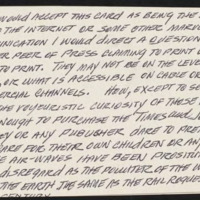 WOULD ACCEPT THIS CARD AS BEING THE
THE INTERNET OR SOME OTHER MAR
UNICATION I WOULD DIRECT A QUESTION
R PEER OF PRESS CLAIMING TO PRINT
TO PRINT. THEY MAY NOT BE ON THE LEVE
OR WHAT IS ACCESSIBLE ON CABLE O
ERCIAL CHANNELS. HOW, EXCEPT TO SE
THE VOYEURISTIC CURIOSITY OF THESE
NOUGH TO PURCHASE THE TIMES
EY OR ANY PUBLISHER DARE TO PRE
CARE FOR THEIR OWN CHILDREN OR ANY
E AIR-WAVES HAVE BEEN PROSTITU
DISREGARD AS THE POLLUTER OF THE
THE EARTH THE SAME AS THE RAIL REQUE
CENTURY